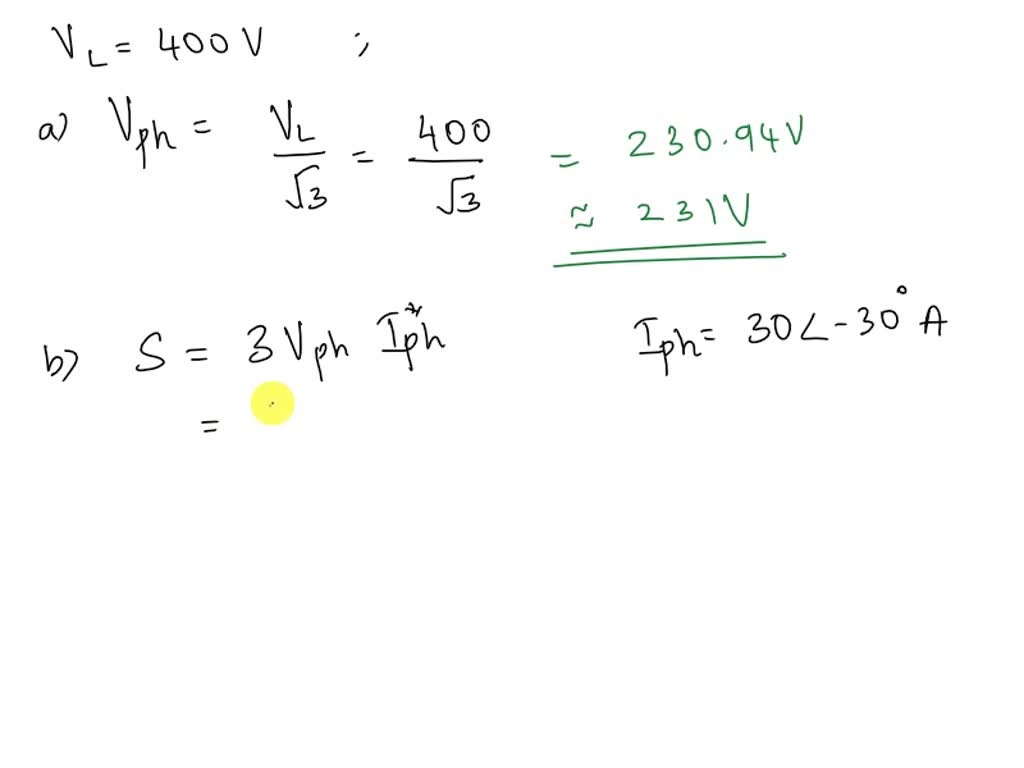 V_L = 400 V ;
a) V_ph = V_L/√3 = 400/√3 = 230.94V
≈ 231V
b) S = 3 V_ph I_ph^* I_ph = 30∠-30° A
=